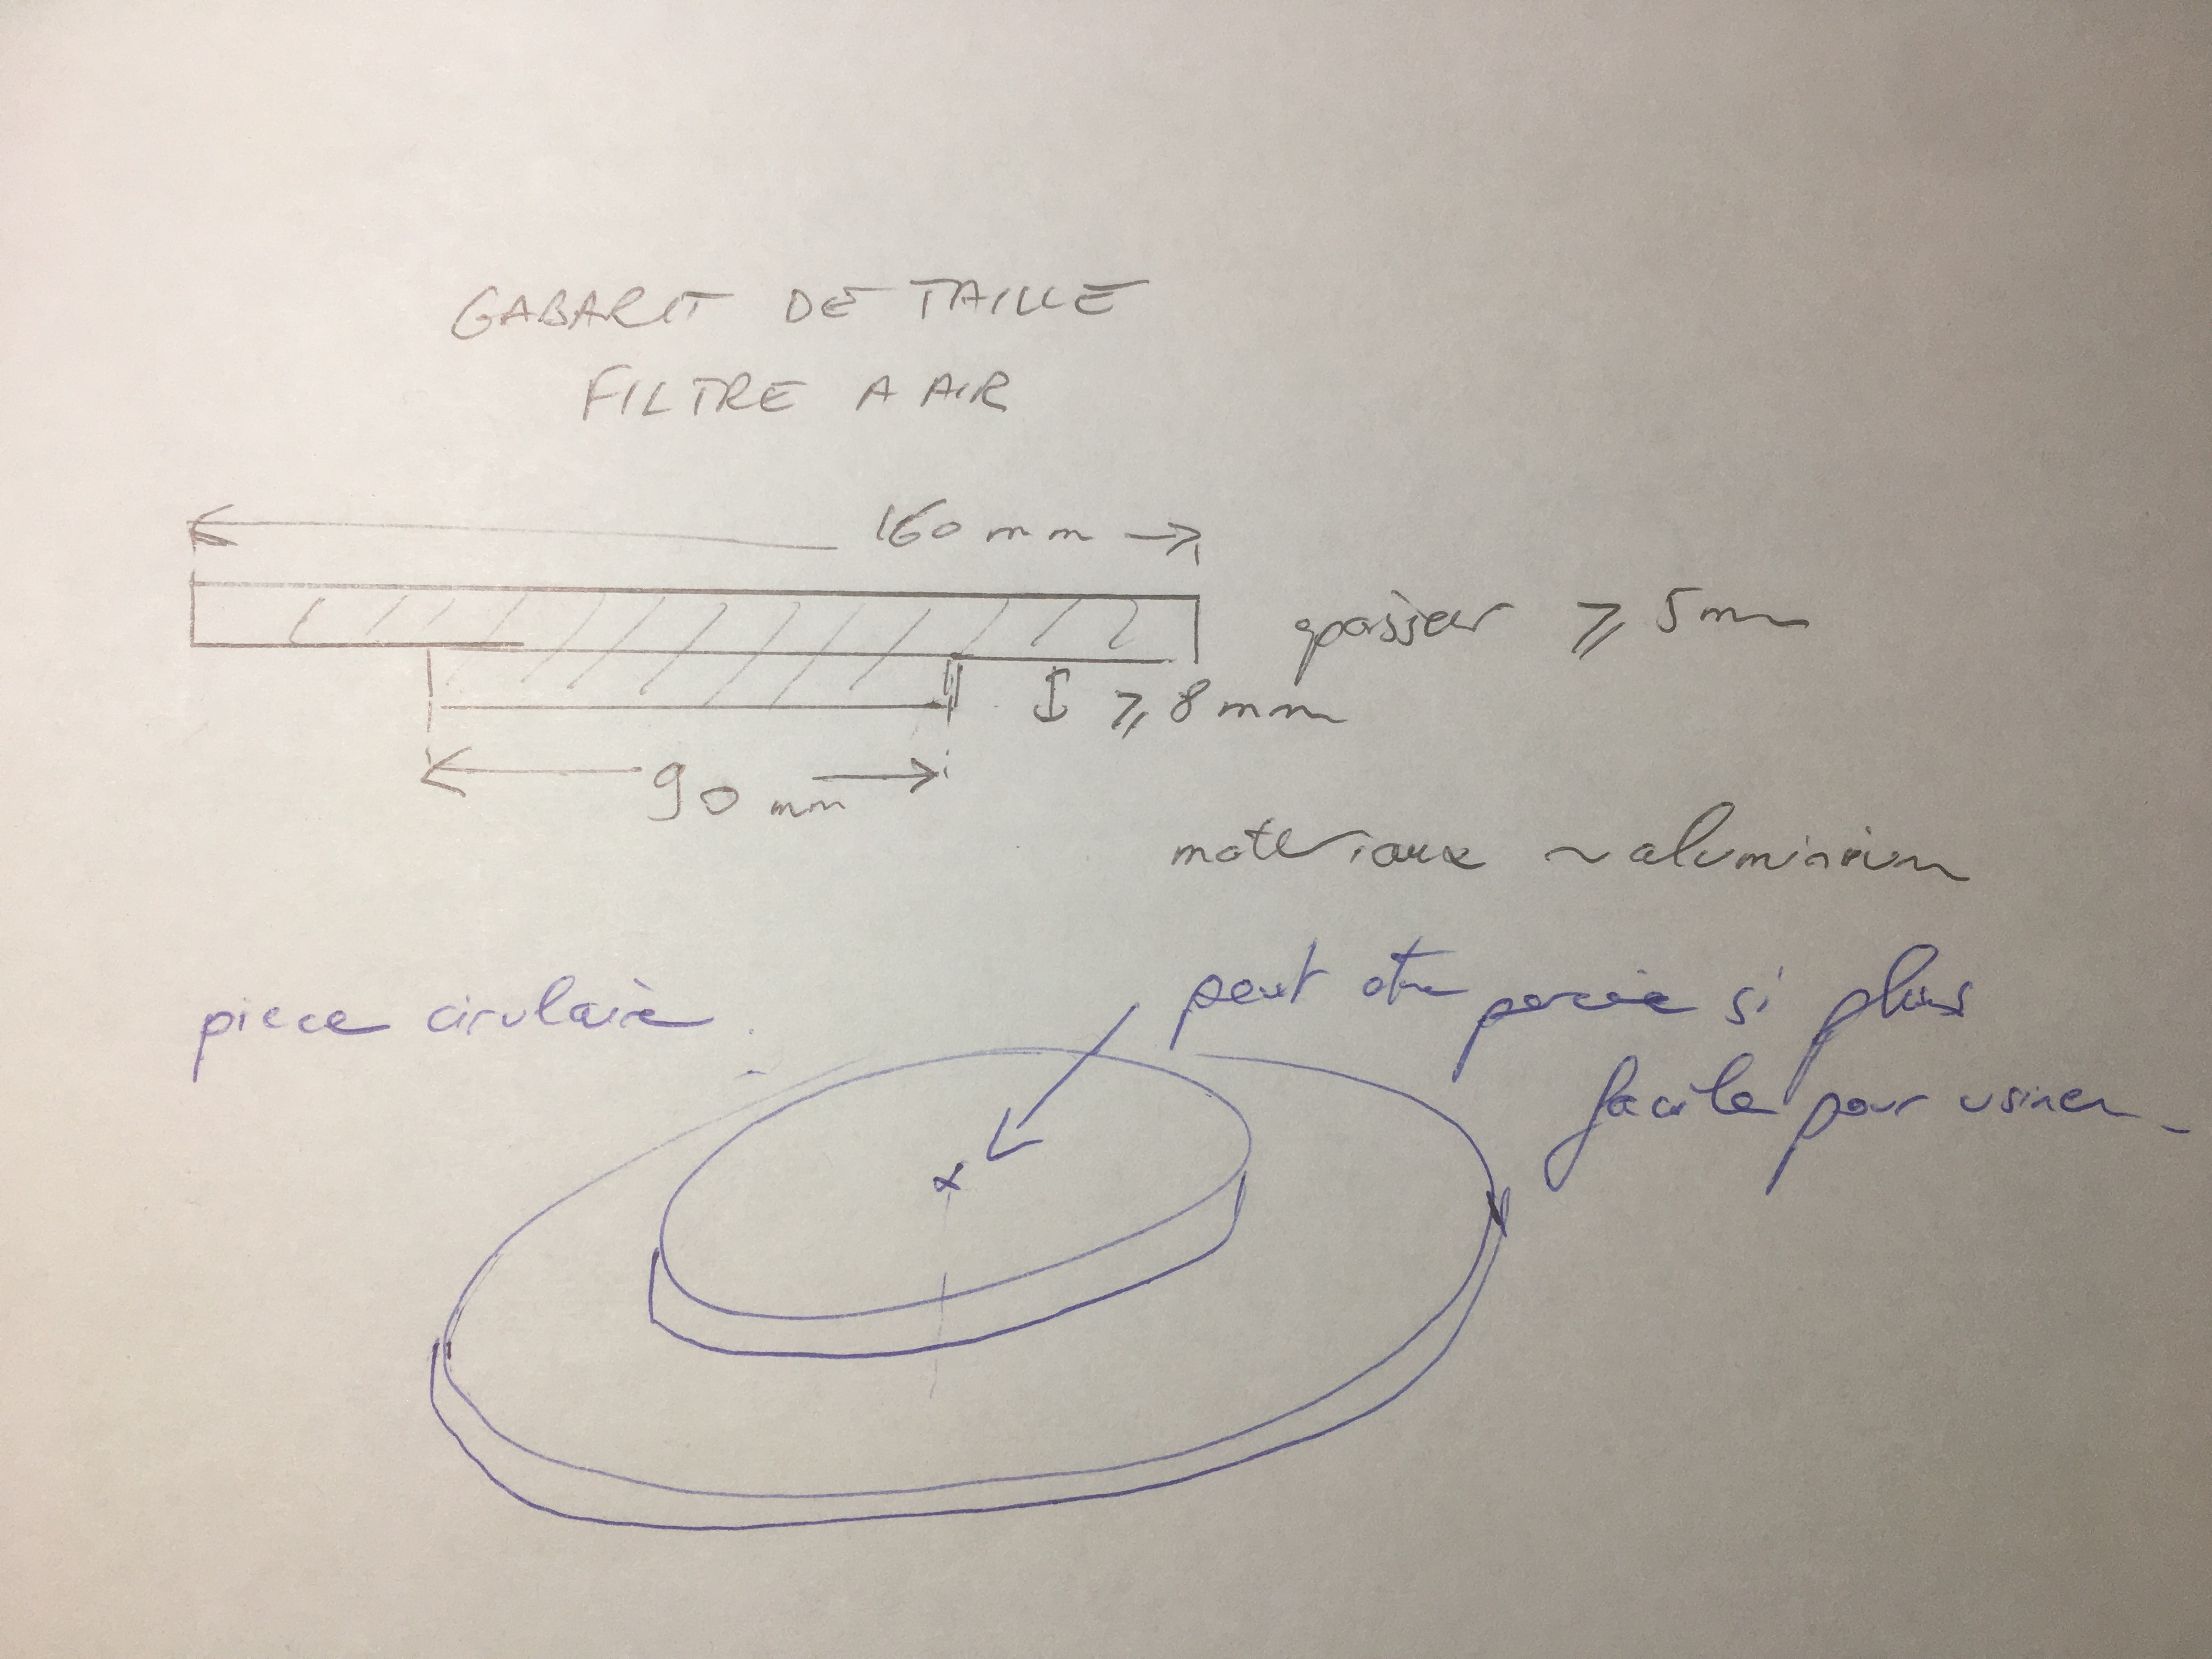 GABARIT DE TAILLE
FILTRE A AIR
160 mm
epaisseur ⩾ 5 mm
⩾ 8 mm
90 mm
materiaux ~ aluminium
piece circulaire
peut etre percée si plus
facile pour usiner